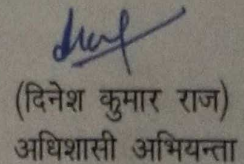 (दिनेश कुमार राज)
अधिशासी अभियन्ता